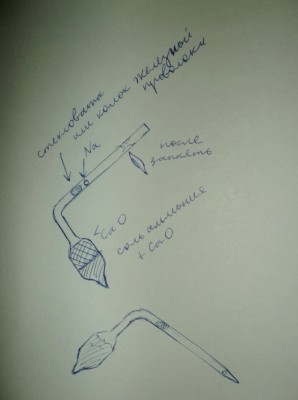 стекловата
или комок железной
проволоки
Na
после
запаять
CaO
соль аммония
+ CaO